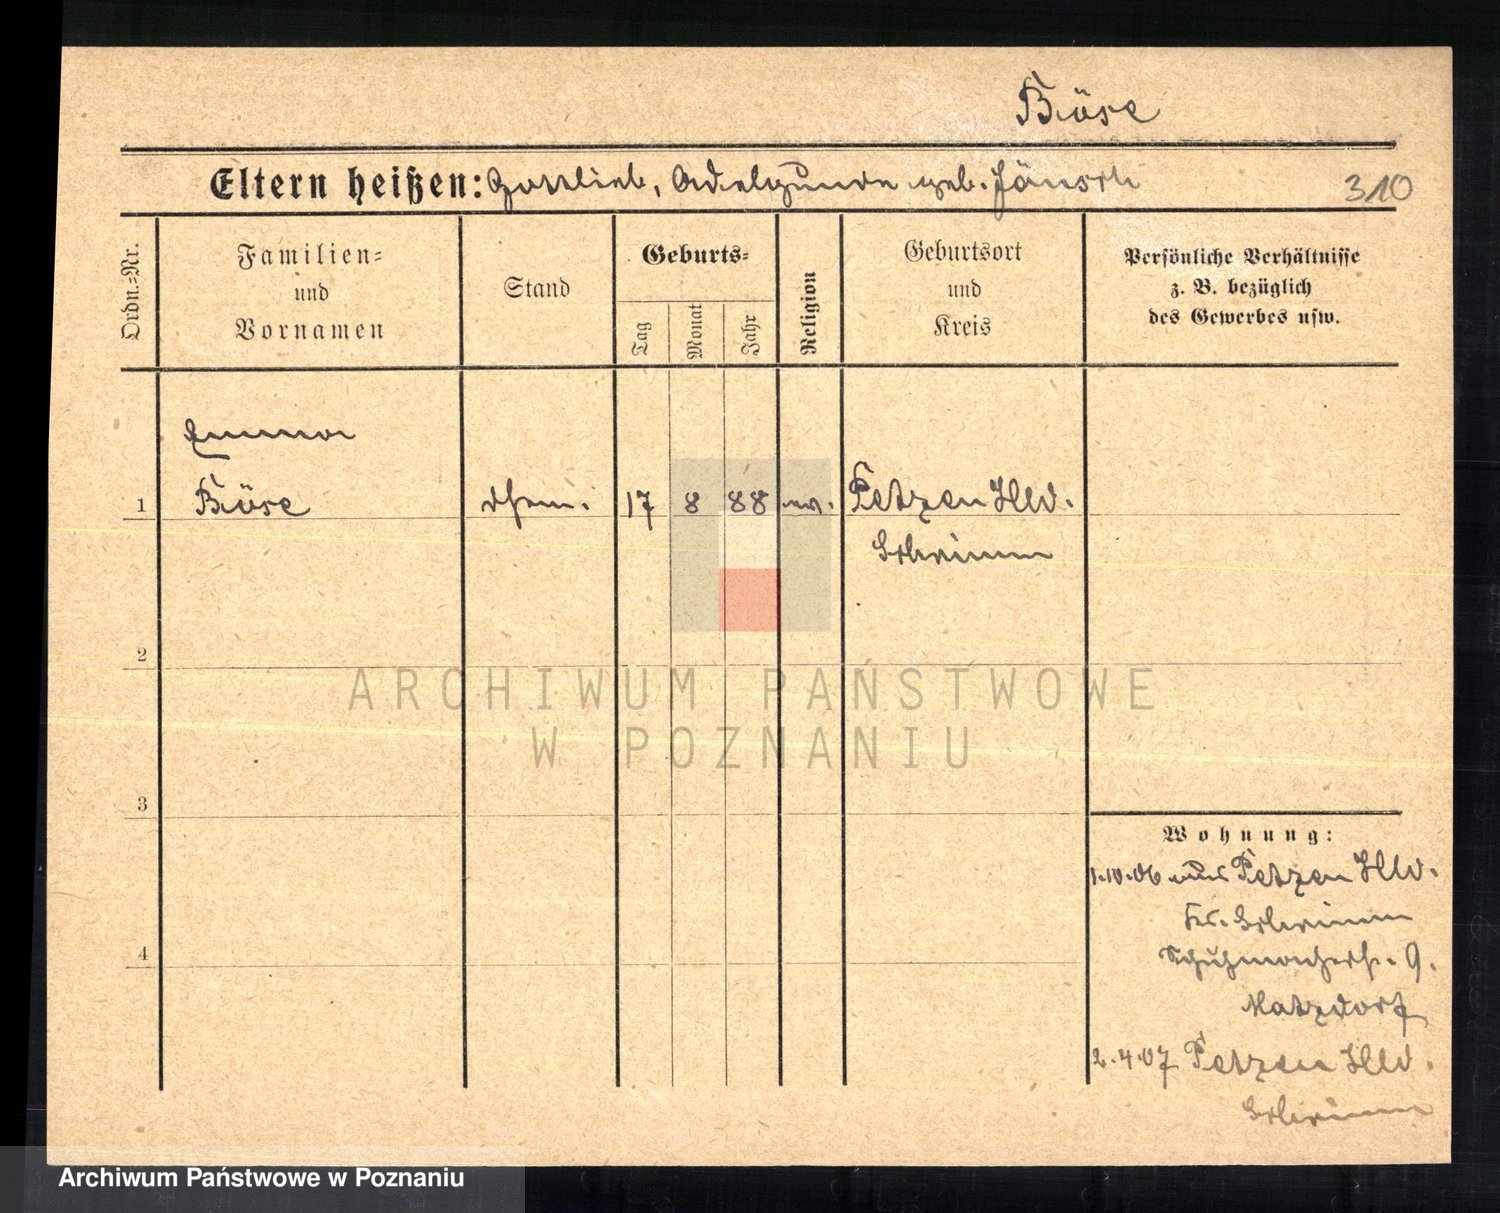 Böse
Eltern heißen: Gottlieb, Adelgunde geb. Jänsch
310
Ordn.-Nr.
Familien-
und
Vornamen
Stand
Geburts-
Tag
Monat
Jahr
Religion
Geburtsort
und
Kreis
Persönliche Verhältnisse
z. B. bezüglich
des Gewerbes usw.
Emma
1 Böse 17 8 88 ev. Petzen Hld.
Schrimm
2
ARCHIWUM PAŃSTWOWE
W POZNANIU
3
Wohnung:
1.10.06 aus Petzen Hld.
Kr. Schrimm
Schuhmacherstr. 9.
Matzdorf
4
2.4.07 Petzen Hld.
Schrimm
Archiwum Państwowe w Poznaniu